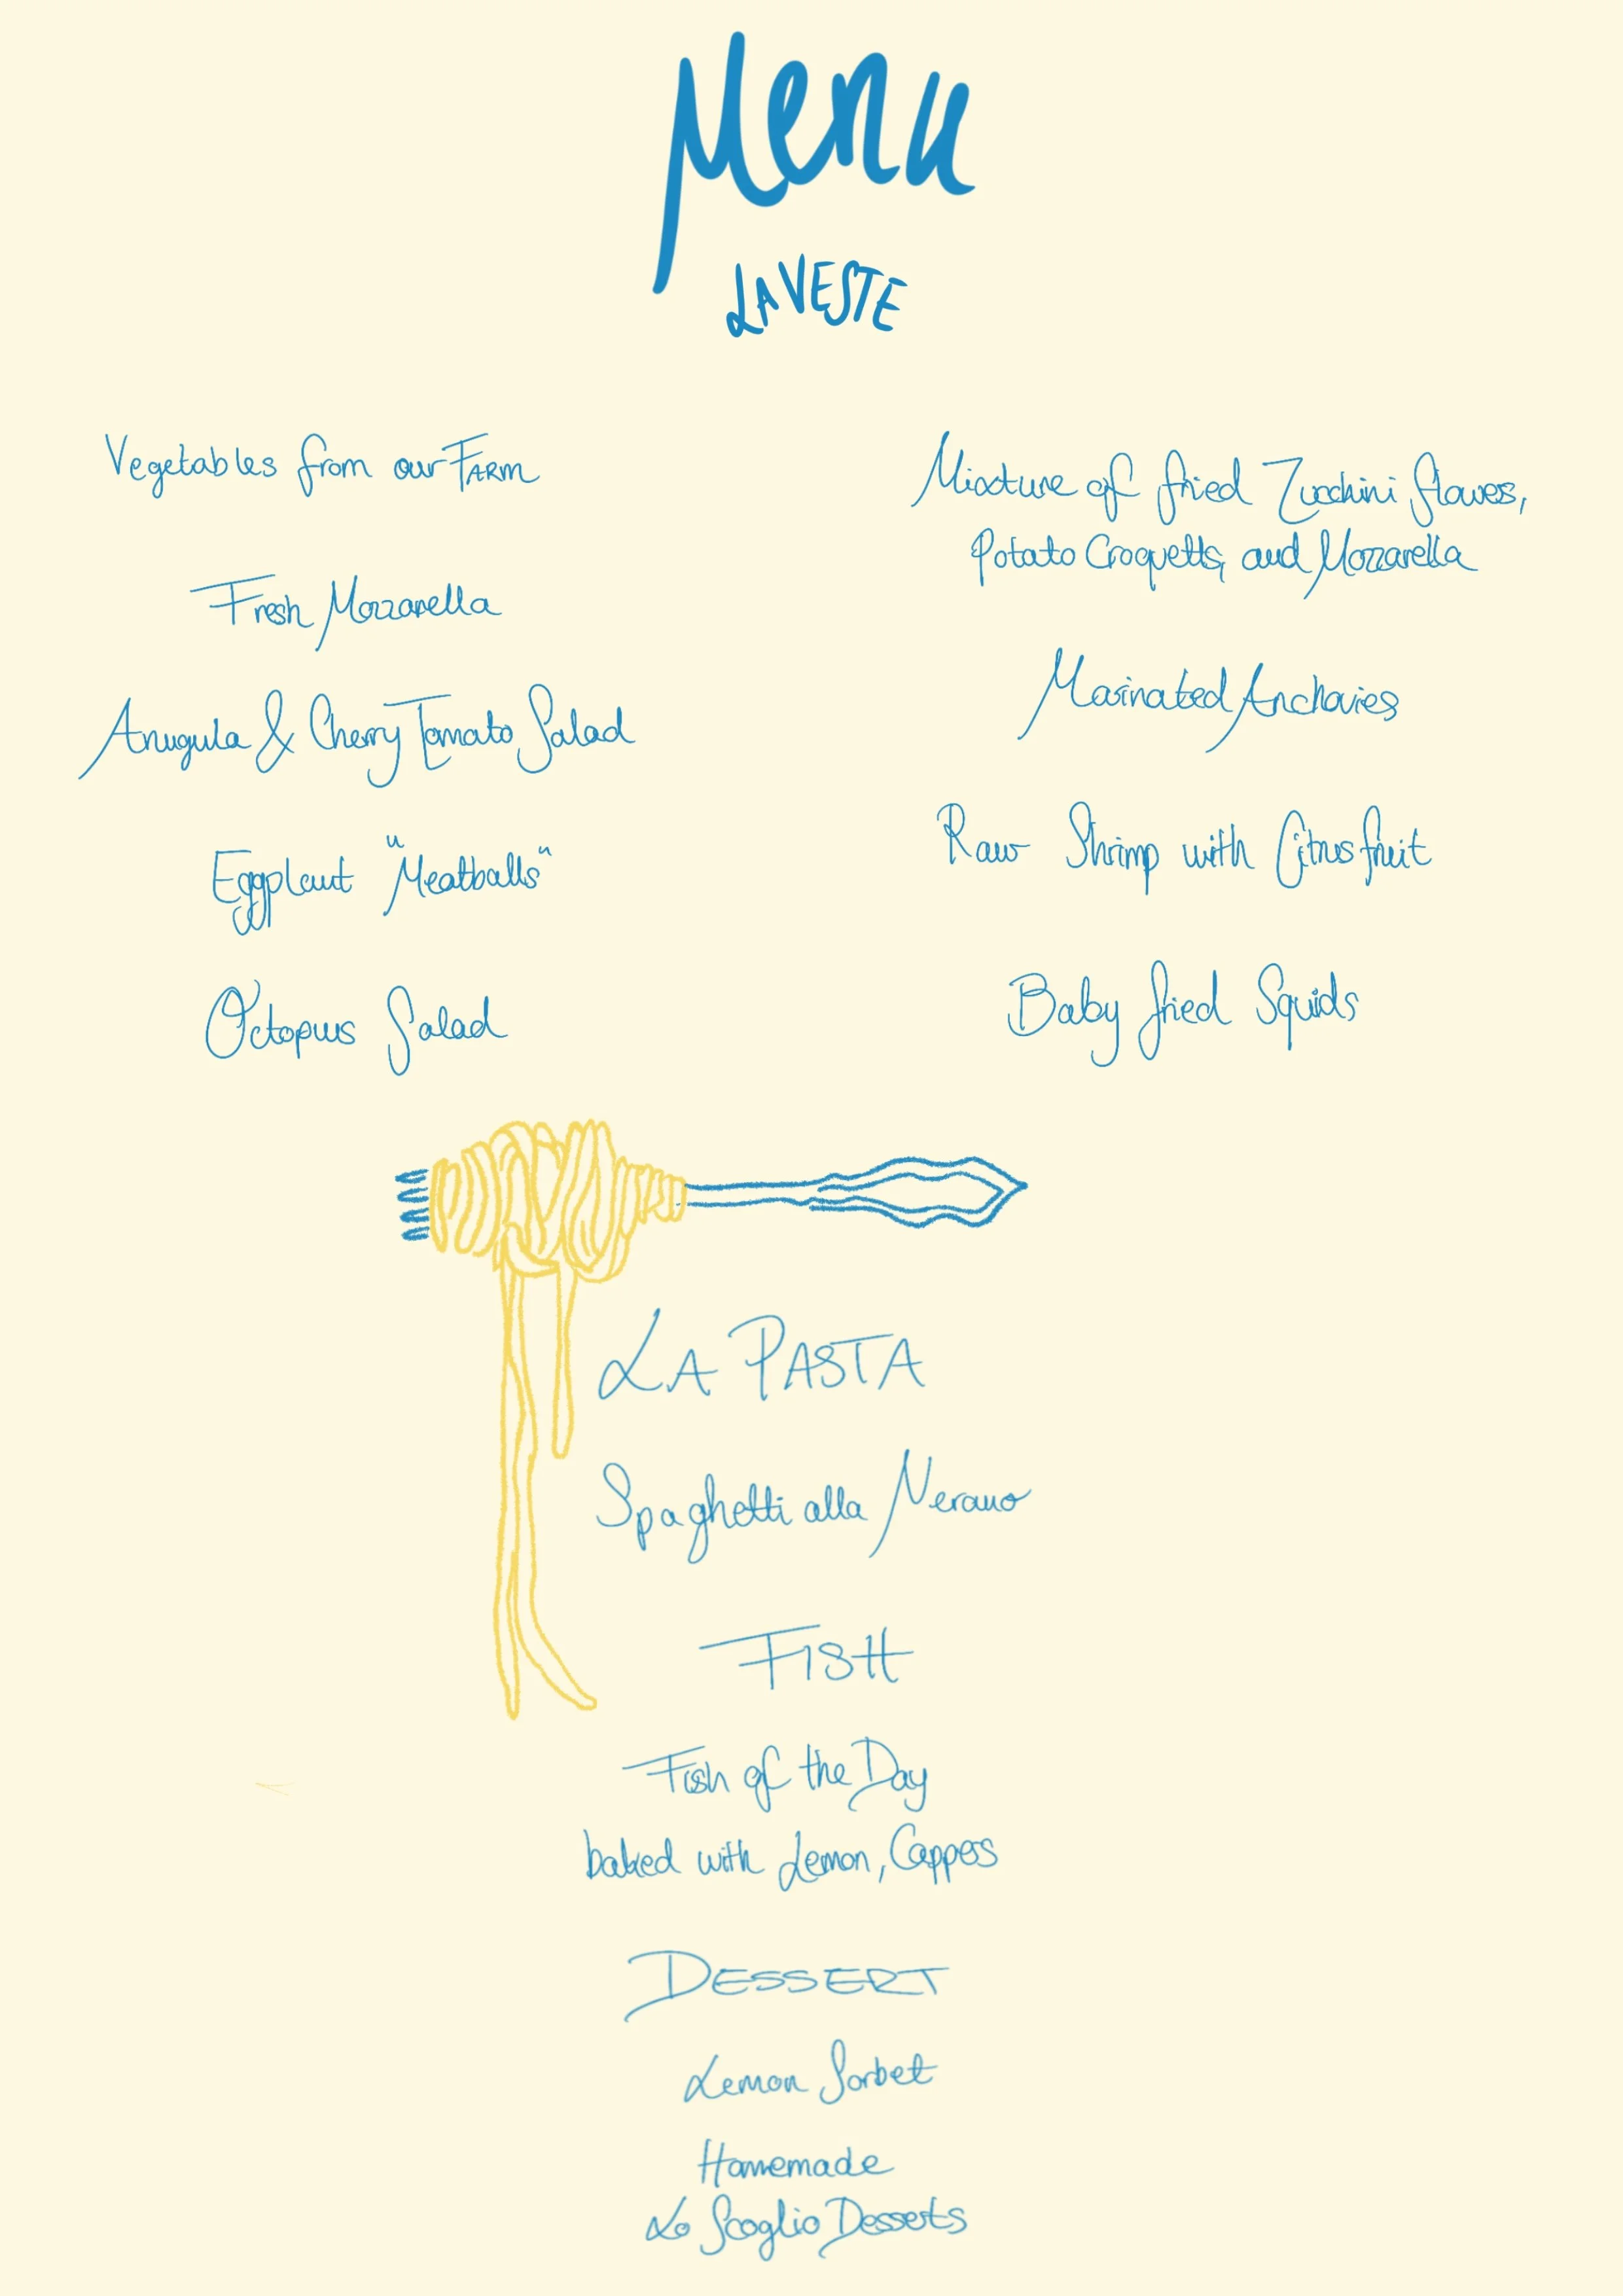 Menu
LAVESTE
Vegetables from our FARM
Fresh Mozzarella
Arugula & Cherry Tomato Salad
Eggplant "Meatballs"
Octopus Salad
Mixture of fried Zucchini flowes,
Potato Croquetts, and Mozzarella
Marinated Anchovies
Raw Shrimp with Citrus fruit
Baby fried Squids
LA PASTA
Spaghetti alla Nerano
FISH
Fish of the Day
baked with Lemon, Cappers
DESSERT
Lemon Sorbet
Homemade
Lo Scoglio Desserts